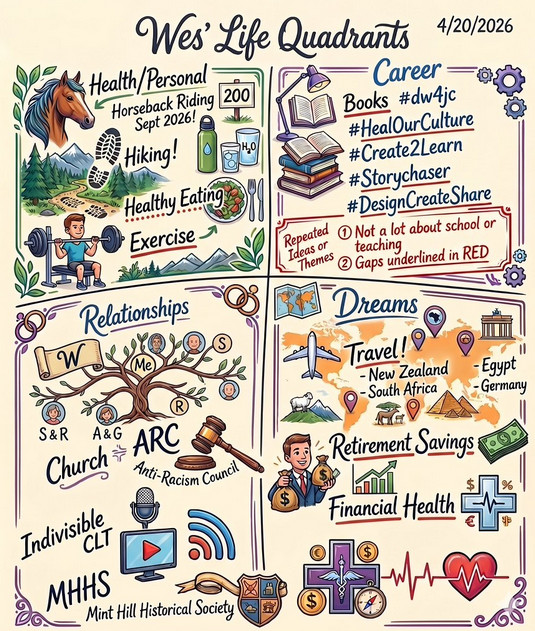 Wes' Life Quadrants
4/20/2026
Health/Personal
Horseback Riding
Sept 2026!
200
Hiking!
H₂O
Healthy Eating
Exercise
Career
Books #dw4jc
#HealOurCulture
#Create2Learn
#Storychaser
#DesignCreateShare
Repeated
Ideas or
Themes
① Not a lot about school or
teaching
② Gaps underlined in RED
Relationships
W
Me
S
R
S&R
A&G
Church
ARC
Anti-Racism Council
Indivisible
CLT
MHHS
Mint Hill Historical Society
Dreams
Travel!
- New Zealand
- South Africa
- Egypt
- Germany
Retirement Savings
$
$
Financial Health
$
%
€
$
$